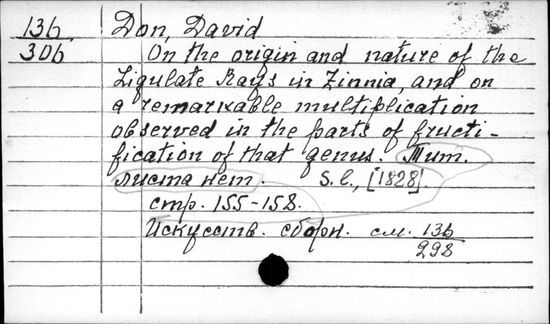 136. Don, David
306 On the origin and nature of the
Ligulate Rays in Zinnia, and on
a remarkable multiplication
observed in the parts of fructi-
fication of that genus. Тит.
листа нет. S. l., [1828].
стр. 155-158.
Искусств. сборн. см. 136
298